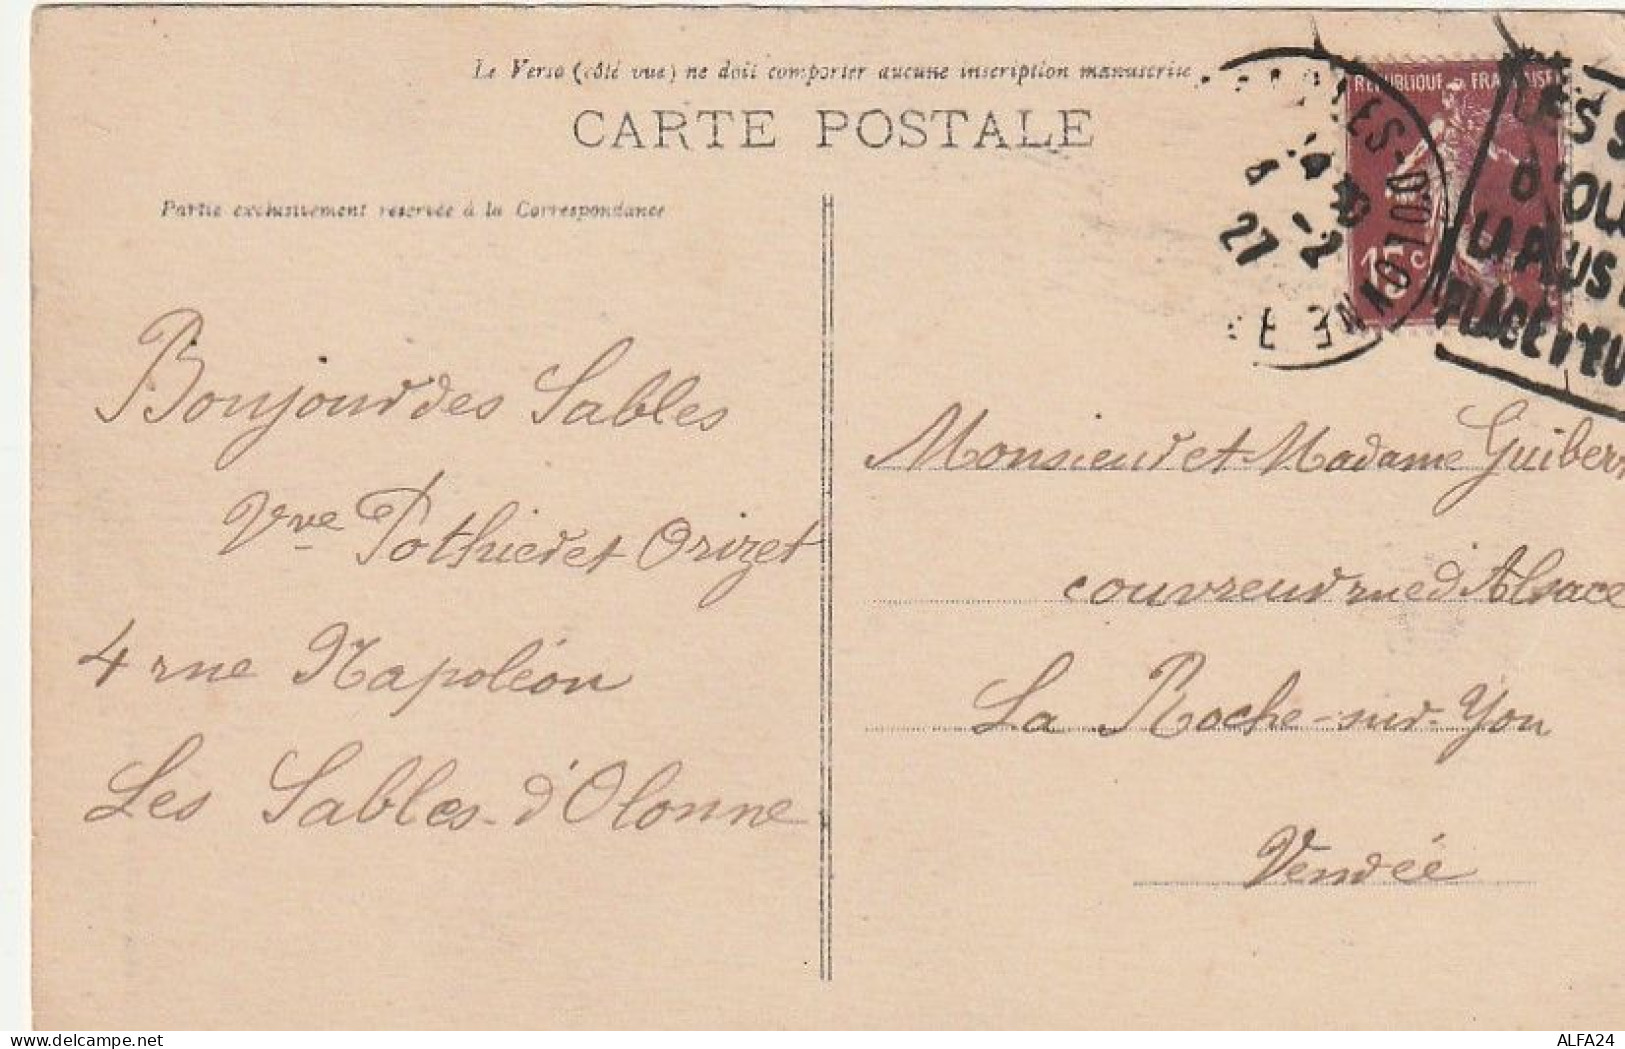 Le Verso (côté vue) ne doit comporter aucune inscription manuscrite
CARTE POSTALE
Partie exclusivement réservée à la Correspondance
REPUBLIQUE FRANÇAISE
15c
27
D'OLONNE
LES S
D'OL
LA PLUS
PLAGE D'EU
Bonjour des Sables
Vve Pothier et Orizet
4 rue Napoléon
Les Sables-d'Olonne
Monsieur et Madame Guiber
couvreur rue d'Alsace
La Roche-sur-Yon
Vendée
ALFA24